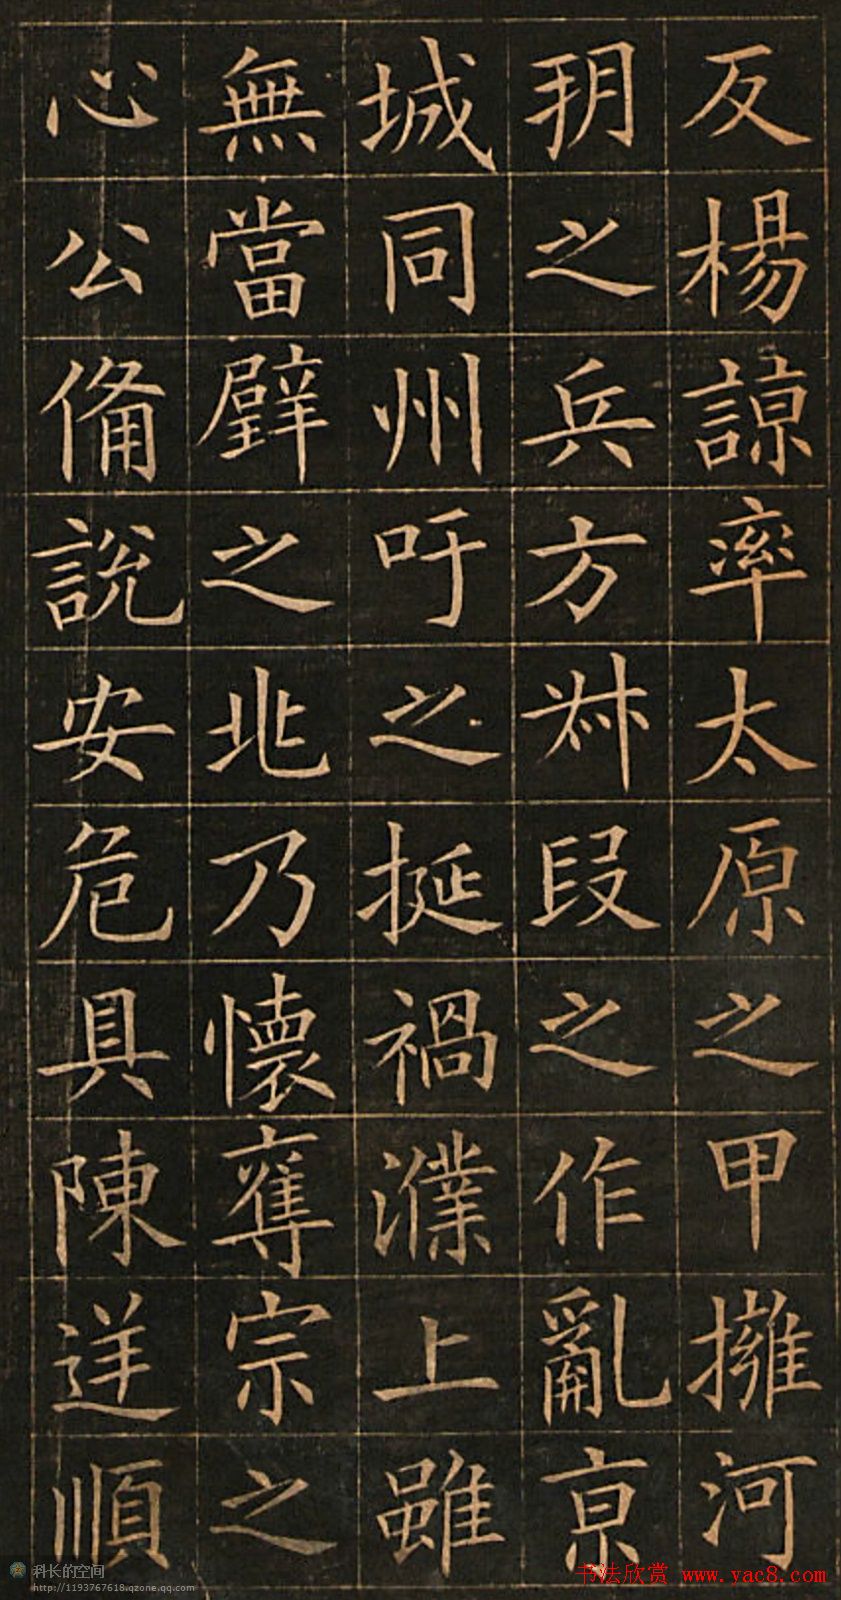 反楊諒率太原之甲擁河
朔之兵方叔段之作亂京
城同州吁之挺禍濮上雖
無當璧之兆乃懷奪宗之
心公備說安危具陳逆順
科长的空间
http://1193767618.qzone.qq.com
书法欣赏 www.yac8.com